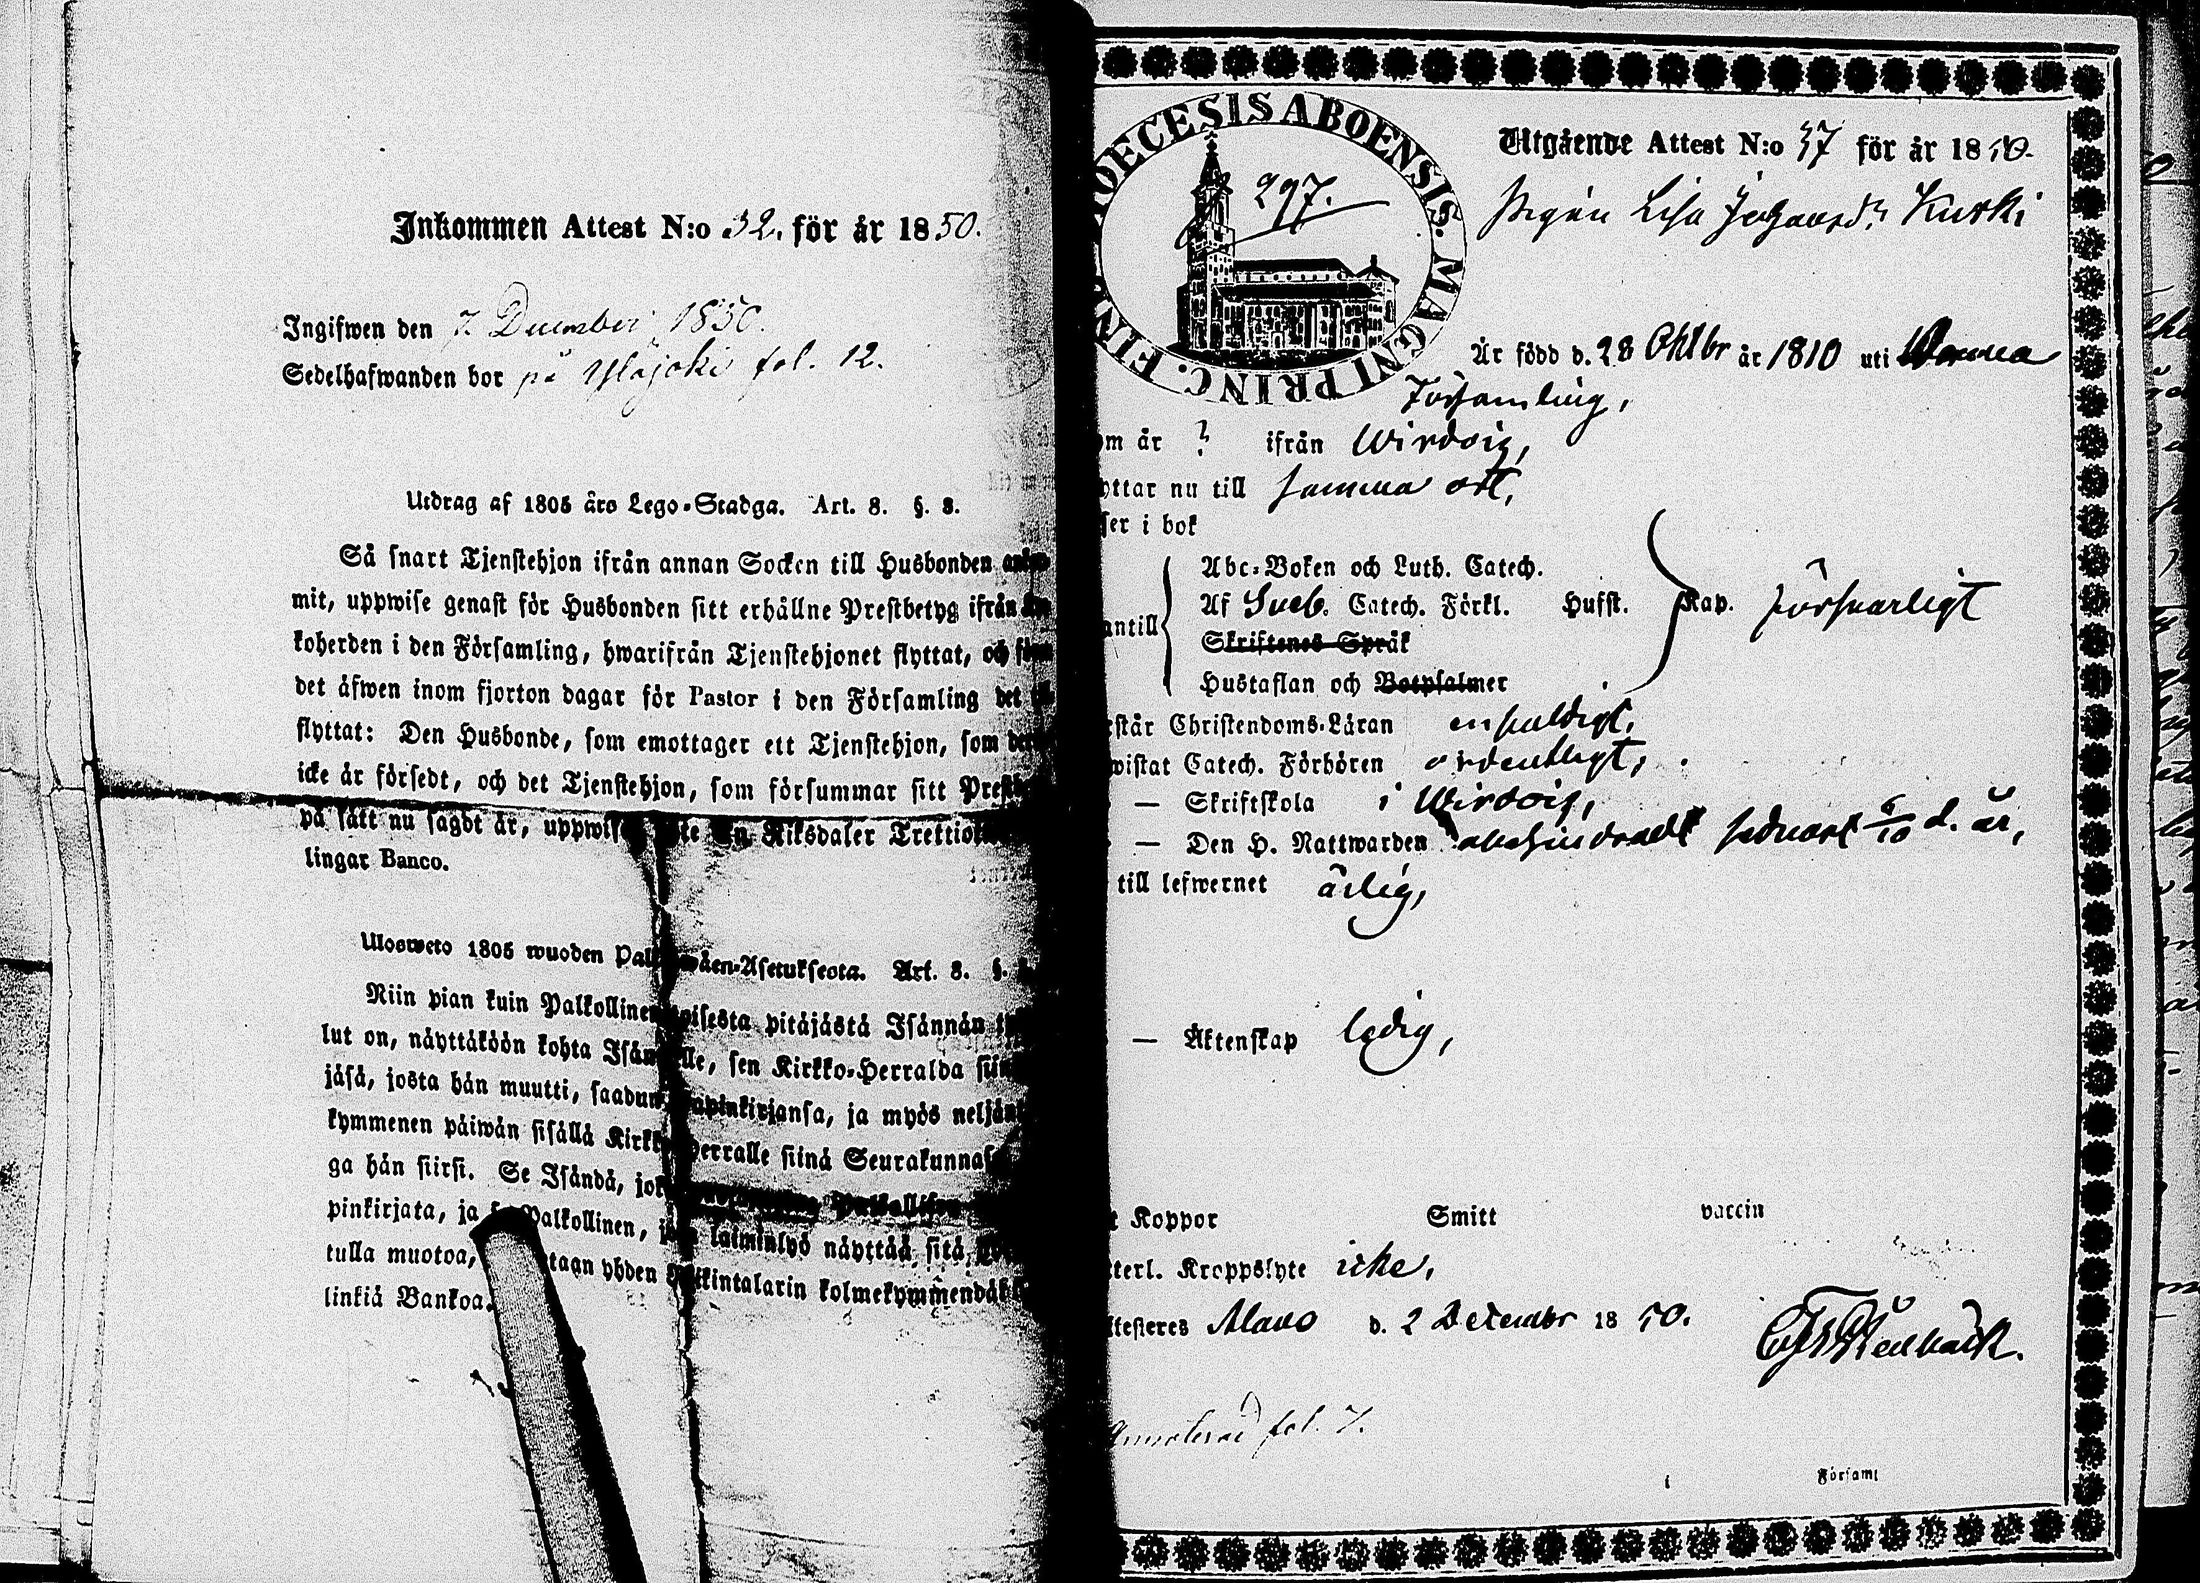 Inkommen Attest N:o 32. för år 1850.
Ingifwen den 7 December 1850.
Sedelhafwanden bor på Ylåjoki fol. 12.
Utdrag af 1805 års Lego-Stadga. Art. 8. §. 3.
Så snart Tjenstehjon ifrån annan Socken till Husbonden
mit, uppwise genast för Husbonden sitt erhållne Prestbetyg ifrån
koherden i den Församling, hwarifrån Tjenstehjonet flyttat, och
det äfwen inom fjorton dagar för Pastor i den Församling det
flyttat: Den Husbonde, som emottager ett Tjenstehjon, som
icke är försedt, och det Tjenstehjon, som försummar sitt
på sätt nu sagdt är, Riksdaler
lingar Banco.
Ulosweto 1805 wuoden Asetuksesta. Art. 8. §.
Niin pian kuin Palkollinen toisesta pitäjästä Isännän
lut on, näyttäköön kohta sen Kirkko-Herralda
jäsä, josta hän muutti, ja myös
kymmenen päiwän sisällä siinä
ga hän siirsi. Se Isändä,
pinkirjata, ja Palkollinen, laiminlyö näyttää sitä
tulla muotoa, yhden kolmekymmendä
linkiä Bankoa.
DIOECESIS ABOENSIS. MAGNI PRINC. FIN
297.
Utgående Attest N:o 57 för år 1850.
Pigan Lisa Johansdr Kurki
Är född d. 28 Oktbr år 1810 uti
Församling,
om år ? ifrån Wirdois,
yttar nu till samma ort,
ser i bok
antill
Abc-Boken och Luth. Catech.
Af Sveb. Catech. Förkl. Husft. Kap. försvarligt
Skriftenes Språk
Hustaflan och Botpsalmer
rstår Christendoms-Läran enfaldigt,
wistat Catech. Förhören ordentligt,
— Skriftskola i Wirdois,
— Den H. Nattwarden obehindradt sednast 6/10 d. år,
till lefwernet ärlig,
— Äktenskap ledig,
Koppor Smitt vaccin
tterl. Kroppslyte icke,
ttesteres Alavo d. 2 Decembr 1850.
fol. 7.
Församl